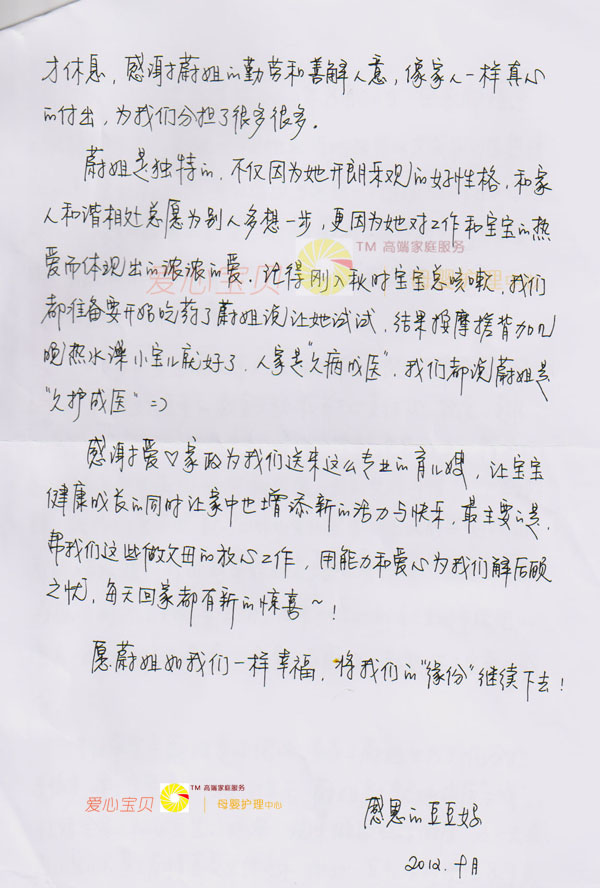 才休息，感谢蔚姐的勤劳和善解人意，像家人一样真心
的付出，为我们分担了很多很多。
蔚姐是独特的，不仅因为她开朗乐观的好性格，和家
人和谐相处总愿为别人多想一步，更因为她对工作和宝宝的热
TM 高端家庭服务
爱而体现出的浓浓的爱。记得刚入秋时宝宝总咳嗽，我们
爱心宝贝 母婴护理中心
都准备要开始吃药了蔚姐说让她试试，结果按摩搓背加几
晚热水澡小宝儿就好了，人家是"久病成医"，我们都说蔚姐是
"久护成医" =)
感谢爱♡家政为我们送来这么专业的育儿嫂，让宝宝
健康成长的同时让家中也增添新的活力与快乐，最主要的是，
帮我们这些做父母的放心工作，用能力和爱心为我们解后顾
之忧，每天回家都有新的惊喜~！
愿蔚姐如我们一样幸福，将我们的"缘份"继续下去！
爱心宝贝 TM 高端家庭服务 母婴护理中心
感恩的豆豆妈
2012.十月